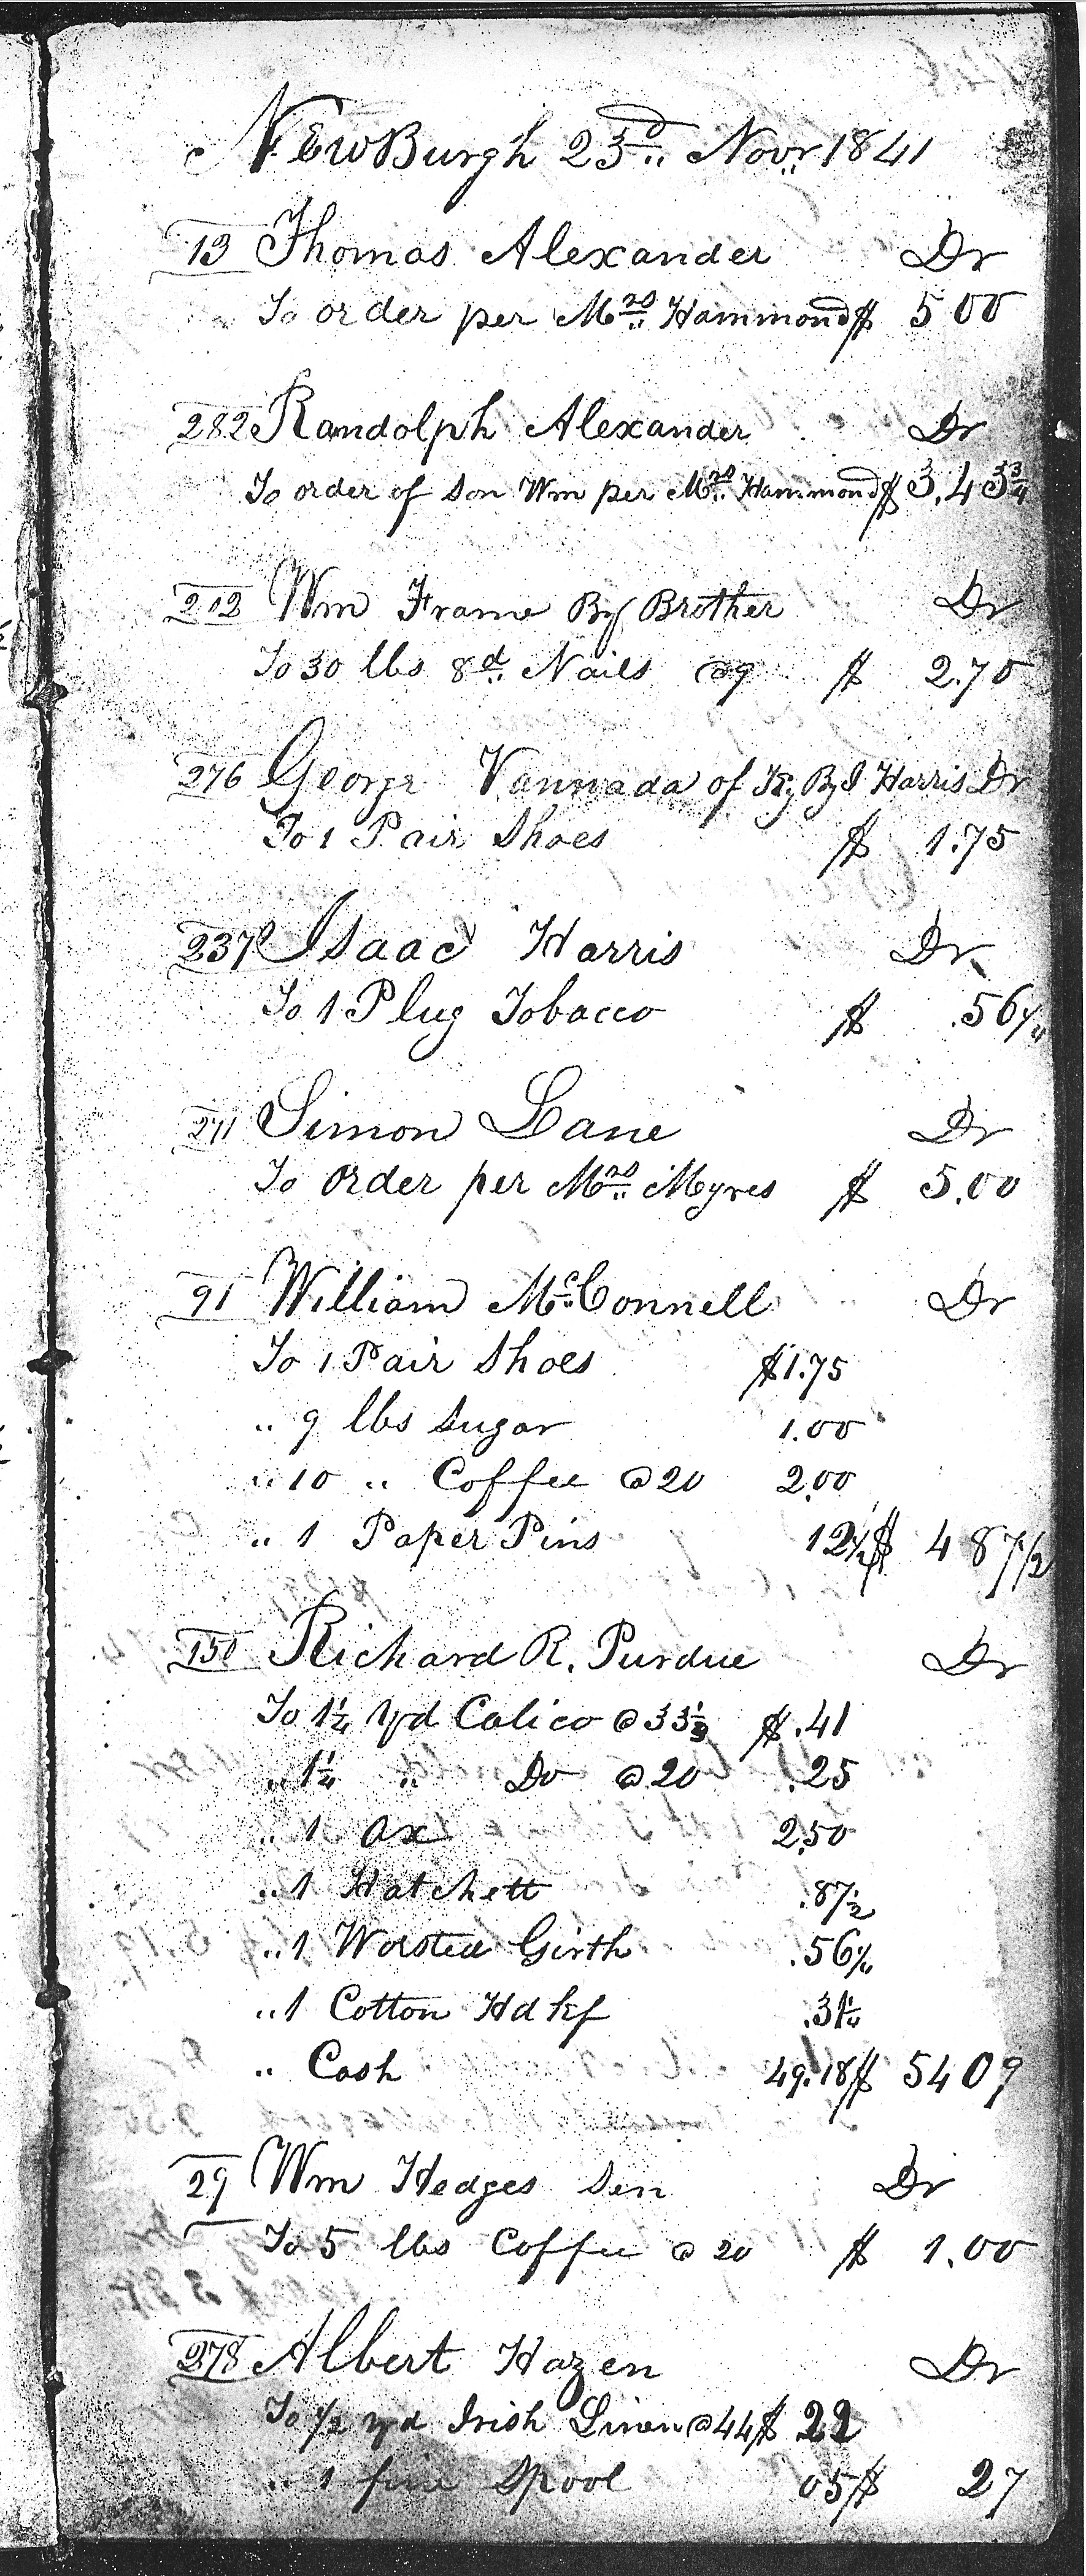 NEwBurgh 23d Novr 1841
13 Thomas Alexander Dr
To order per Mrs Hammond $ 5 00
282 Randolph Alexander Dr
To order of Son Wm per Mrs Hammond $ 3.43¾
202 Wm Frame By Brother Dr
To 30 lbs 8d Nails @9 $ 2.70
276 George Vannada of Ky By I Harris Dr
To 1 Pair Shoes $ 1.75
237 Isaac Harris Dr
To 1 Plug Tobacco $ .56¼
271 Simon Lane Dr
To order per Mrs Myres $ 5.00
91 William McConnell Dr
To 1 Pair Shoes $1.75
" 9 lbs Sugar 1.00
" 10 " Coffee @20 2.00
" 1 Paper Pins 12½ $ 4 87½
150 Richard R. Purdue Dr
To 1¼ yd Calico @33⅓ $.41
" 1¼ " Do @20 .25
" 1 Ax 2.50
" 1 Hatchett .87½
" 1 Worsted Girth .56¼
" 1 Cotton Hdkf .31¼
" Cash 49.18 $ 54 09
29 Wm Hedges Sen Dr
To 5 lbs Coffee @ 20 $ 1.00
278 Albert Hazen Dr
To ½ yd Irish Linen @44 $ 22
" 1 fine Spool 05 $ 27